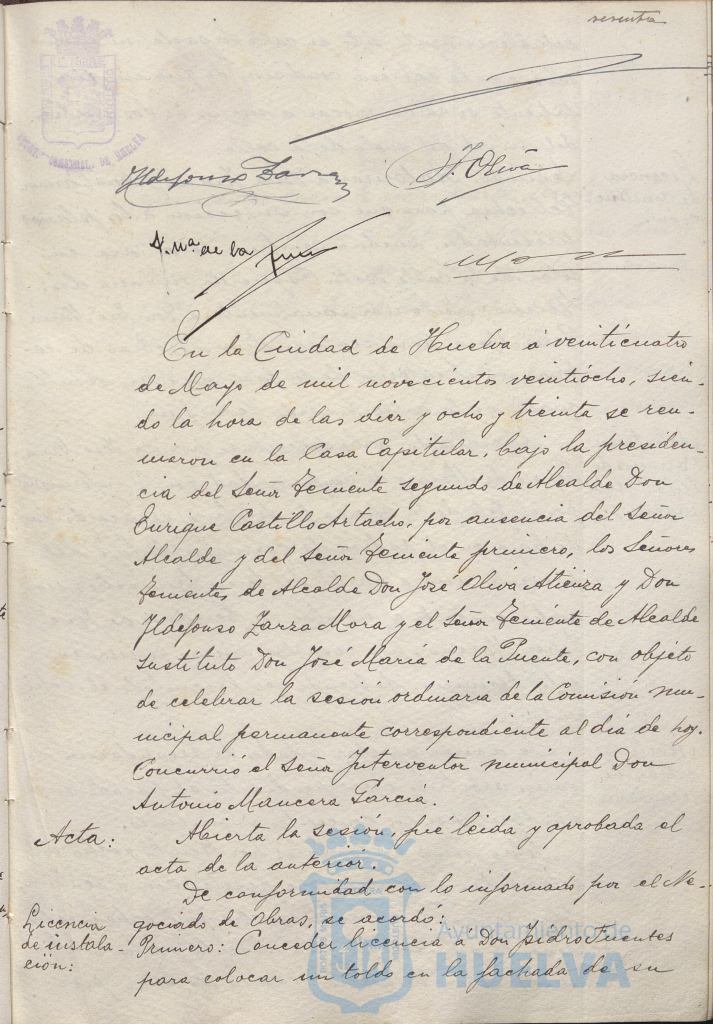 sesenta
Ildefonso Zarza
J. Oliva
J. Mª de la Puente
En la Ciudad de Huelva á veinticuatro
de Mayo de mil novecientos veintiocho, sien-
do la hora de las diez y ocho y treinta se reu-
nieron en la Casa Capitular, bajo la presiden-
cia del Señor Teniente segundo de Alcalde Don
Enrique Castillo Artacho, por ausencia del Señor
Alcalde y del Señor Teniente primero, los Señores
Tenientes de Alcalde Don José Oliva Atienza y Don
Ildefonso Zarza Mora y el Señor Teniente de Alcalde
sustituto Don José María de la Puente, con objeto
de celebrar la sesión ordinaria de la Comisión mu-
nicipal permanente correspondiente al día de hoy.
Concurrió el Señor Interventor municipal Don
Antonio Mancera García.
Acta: Abierta la sesión, fué leida y aprobada el
acta de la anterior.
De conformidad con lo informado por el Ne-
gociado de Obras, se acordó:
Licencia
de instala-
ción:
Primero: Conceder licencia á Don Isidro Fuentes
para colocar un toldo en la fachada de su
Ayuntamiento de
HUELVA